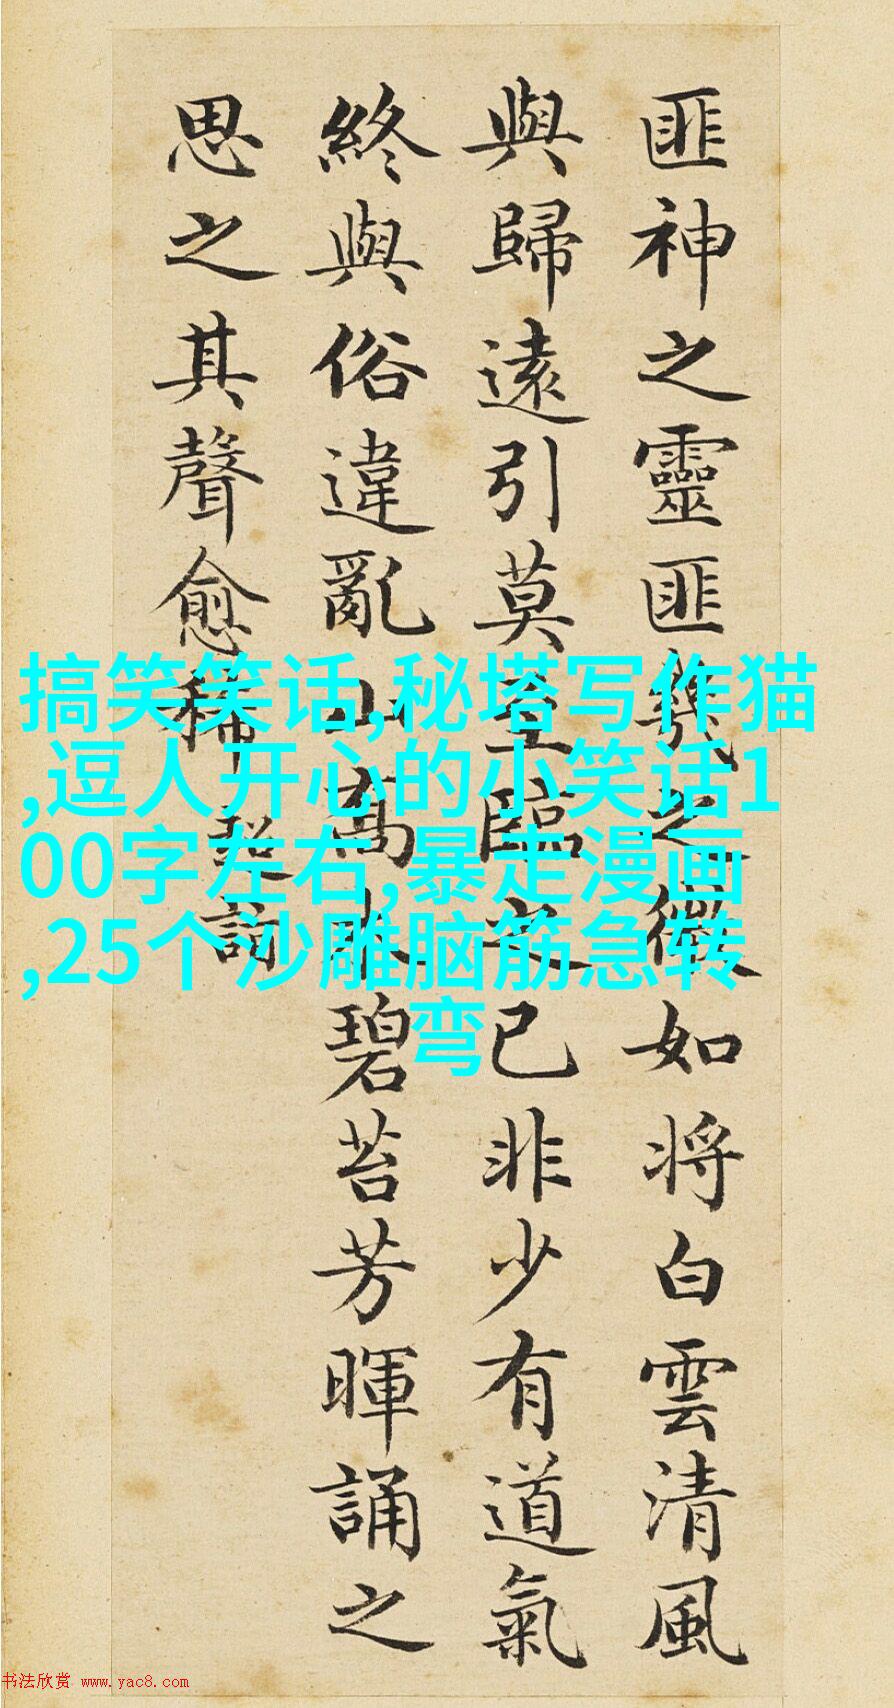 匪神之靈匪幾之微如將白雲清風
與歸遠引莫至臨之已非少有道氣
終與俗違亂山高木碧苔芳暉誦之
思之其聲愈稀 超詣
搞笑笑话,秘塔写作猫
,逗人开心的小笑话1
00字左右,暴走漫画
,25个沙雕脑筋急转
弯
书法欣赏 www.yac8.com